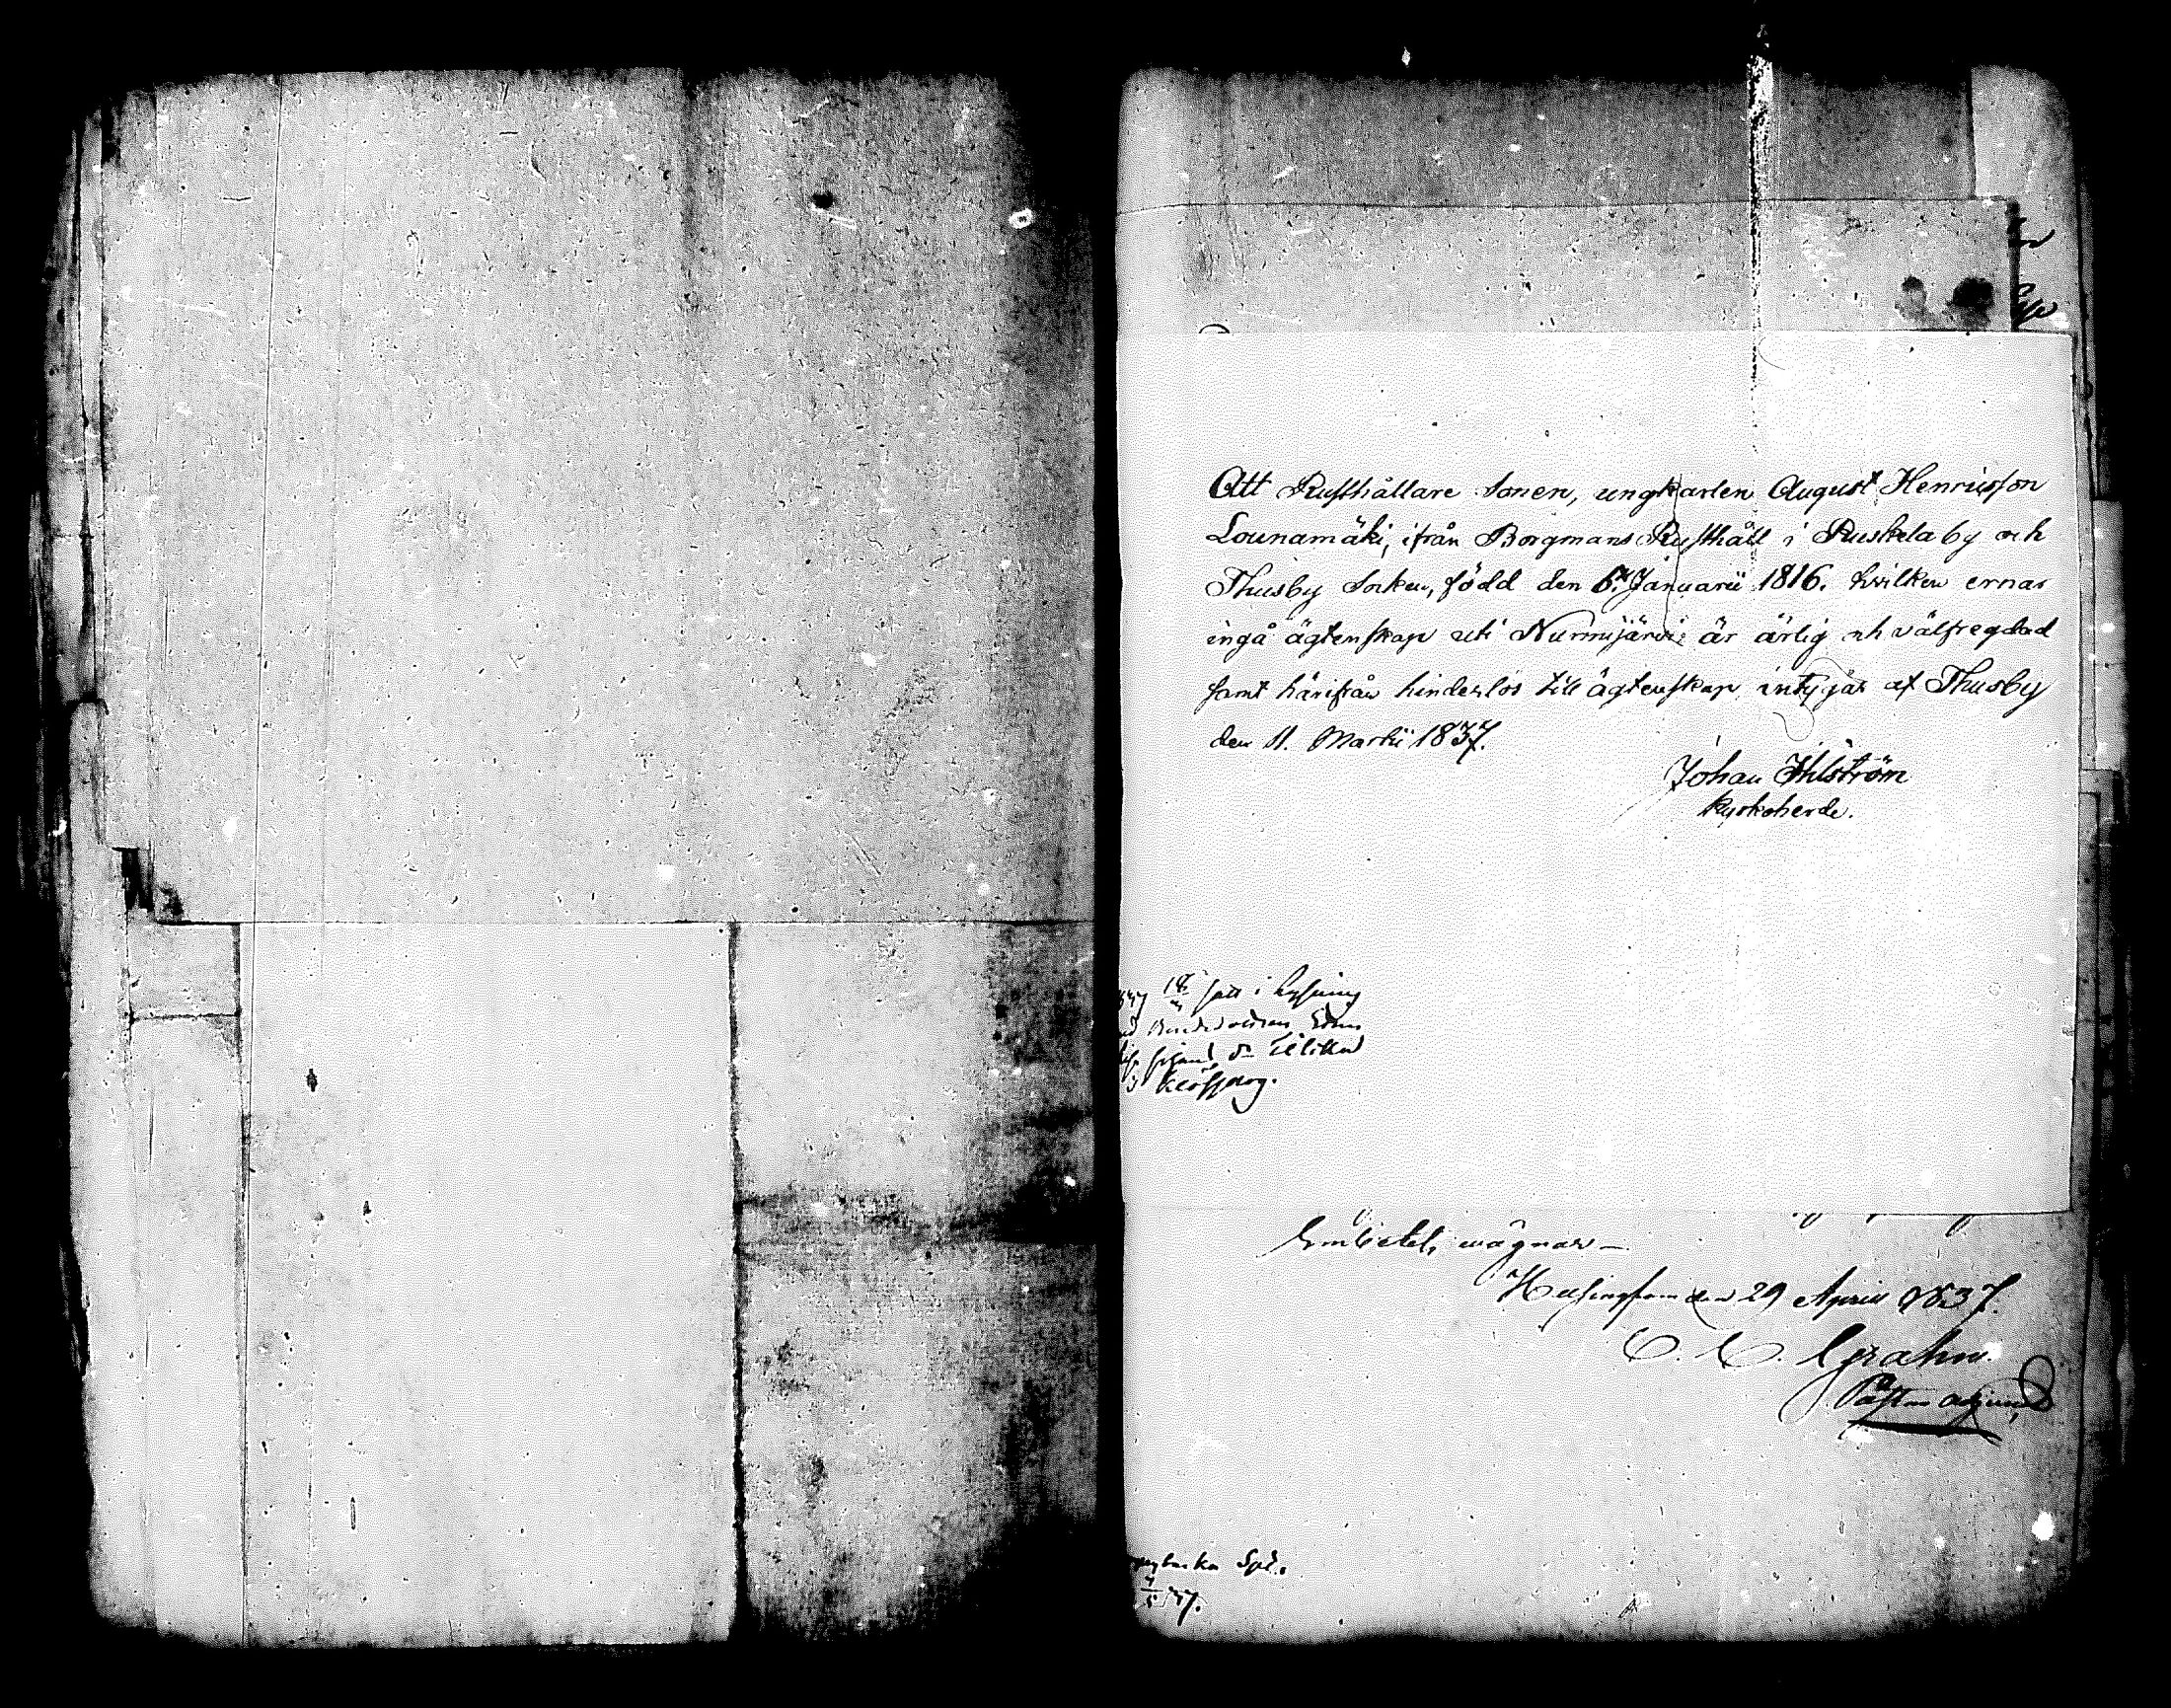 Att Rusthållare Sonen, ungkarlen August Henricsson
Lounamäki, ifrån Borgmans Rusthåll i Ruskela by och
Thusby Socken, född den 6. Januarii 1816. hvilken ernar
ingå ägtenskap uti Nurmijärvi är ärlig och välfregdad
samt härifrån hinderlös till ägtenskap intygar af Thusby
den 11. Martii 1837.
Johan Ihlström
Kyrkoherde.
18 satt i lysning
i
Helsingfors den 29 April 1837.
C. C. Grahn.
Past. adjunct